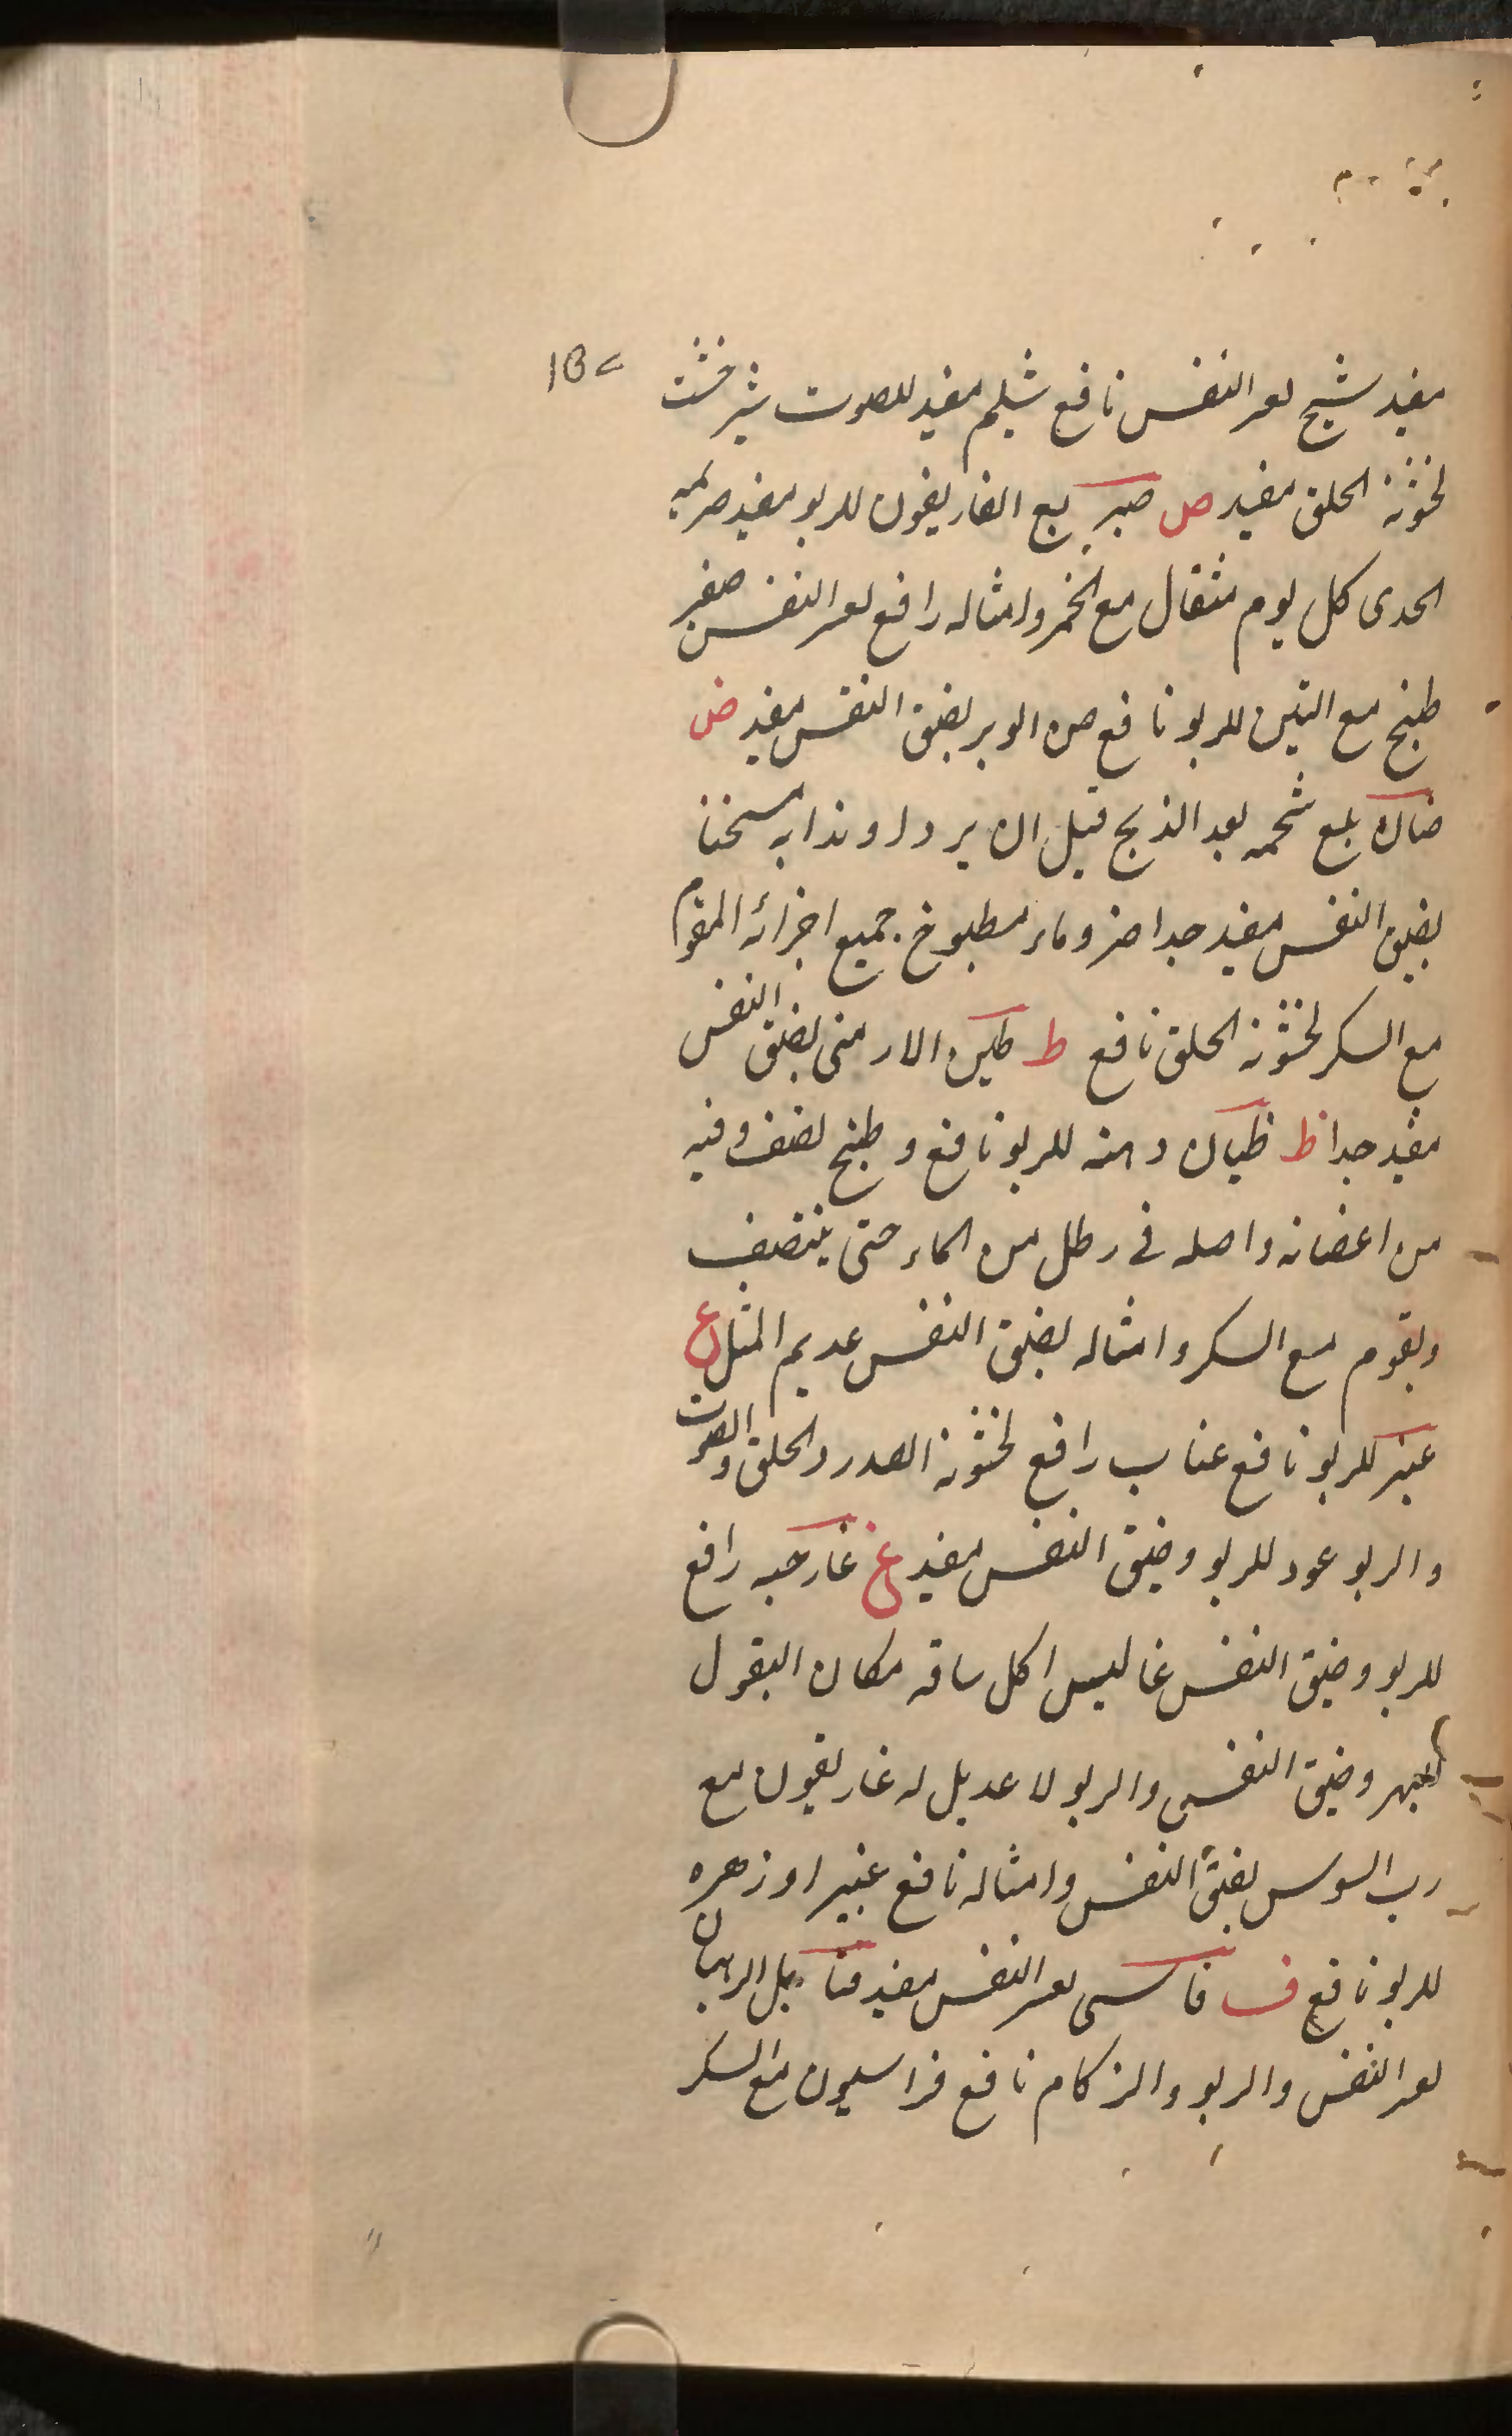 مفيد شيح لعسر النفس نافع شيلم مفيد للصوت شيرخشت
لخشونة الحلق مفيد ص صبر مع الغاريقون للربو مفيد
الجدى كل يوم مثقال مع الخمر وامثاله رافع لعسر النفس صغير
طبخ مع التين للربو نافع صن الوبر لضيق النفس مفيد ض
ضان بلع شحمه بعد الذبح قبل ان يرد او نذابه مسخنا
لضيق النفس مفيد جدا ضرو ماء مطبوخ جميع اجزائه المقوم
مع السكر لخشونة الحلق نافع ط طين الارمنى لضيق النفس
مفيد جدا ظ ظيان دهنه للربو نافع و طبخ نصف وقيه
من اغصانه واصله فى رطل من الماء حتى ينتصف
ويقوم مع السكر وامثاله لضيق النفس عديم المثل ع
عنبر للربو نافع عناب رافع لخشونة الصدر والحلق والصوت
والربو عود للربو وضيق النفس مفيد غ غار حبه رافع
للربو وضيق النفس غاليس اكل ساقه مكان البقول
للبهر وضيق النفس والربو لا عديل له غاريقون مع
رب السوس لضيق النفس وامثاله نافع غبيرا وزهره
للربو نافع ف لعسر النفس مفيد
لعسر النفس والربو والزكام نافع فراسيون مع السكر